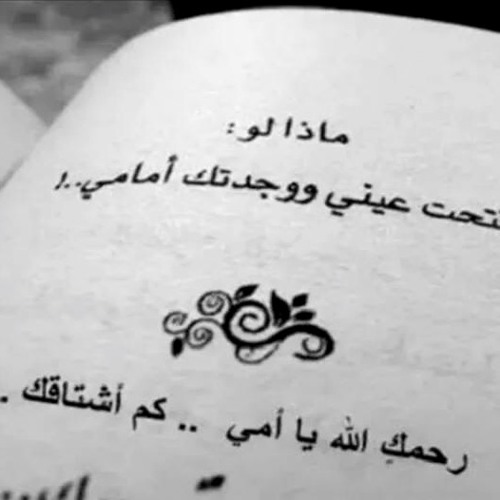 ماذا لو:
فتحت عيني ووجدتك أمامي..!
رحمكِ الله يا أمي .. كم أشتاقك .